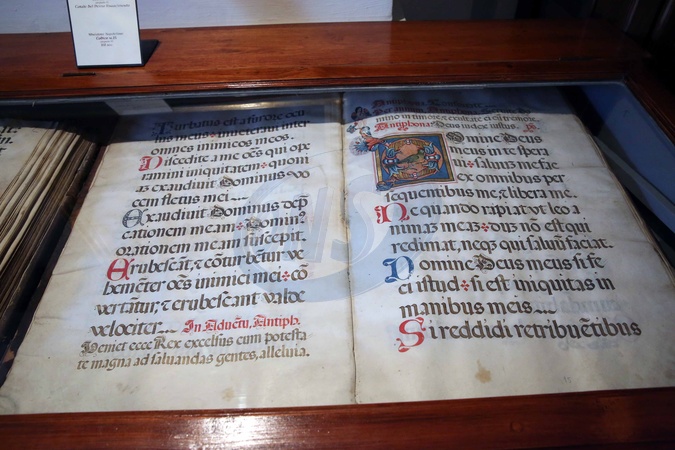 Turbatus est a furore ocu
lus meus inueteraui inter
omnes inimicos meos.
Discedite a me oēs qui ope
ramini iniquitatem quoni
aʒ exaudiuit Dominus vo
cem fletus mei
Exaudiuit Dominus dep̄
cationem meam Dominꝰ
orationem meam suscepit.
Erubescāt, & cōturbētur ve
hemēter oēs inimici mei cō
vertātur, & erubescāt valde
velociter In Aduētu, Antiph.
Veniet ecce Rex excelsus cum potesta
te magna ad saluandas gentes, alleluia.
mino in timore et exultate ei cū tremore
Antiphona. Deus iudex iustus.
Domine Deus
meus in te spera
ui saluum me fac
ex omnibus per
sequentibus me, & libera me.
Ne quando rapiat vt leo a
nimaʒ meaʒ duʒ nō est qui
redimat, neqʒ qui saluū faciat.
Domine Deus meus si fe
ci istud si est iniquitas in
manibus meis
Si reddidi retribuētibus